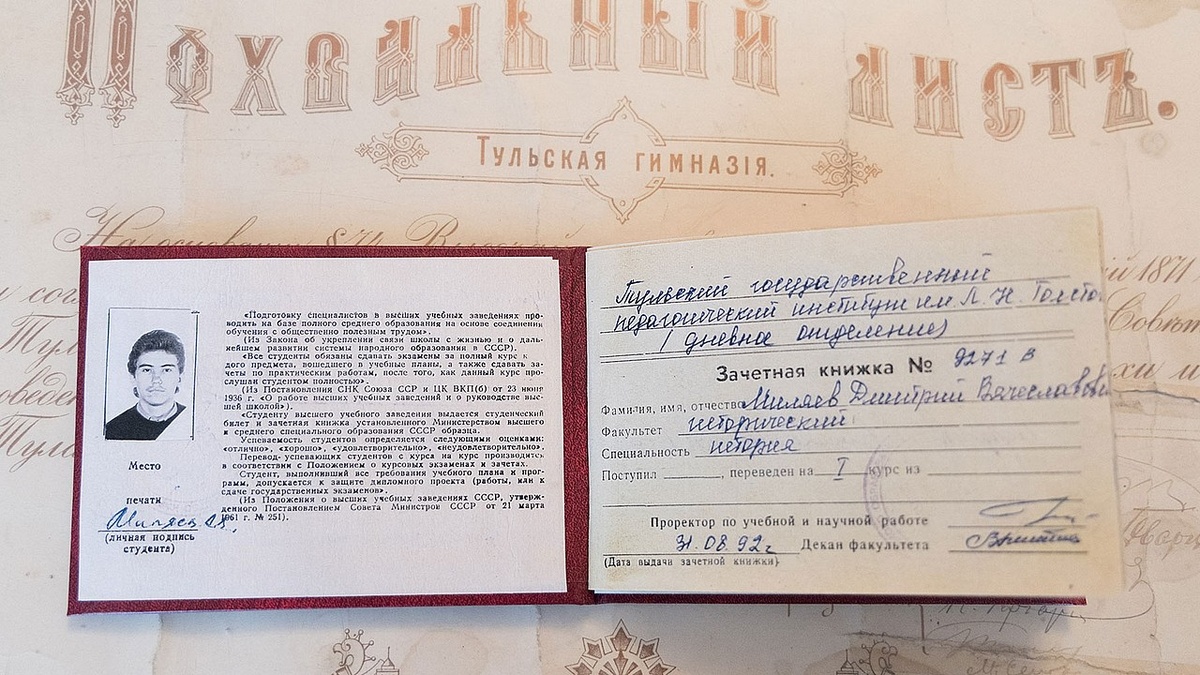 Похвальный листъ.
Тульская гимназія.
На основаніи §
1871
«Подготовку специалистов в высших учебных заведениях про-
водить на базе полного среднего образования на основе соединения
обучения с общественно полезным трудом».
(Из Закона об укреплении связи школы с жизнью и о даль-
нейшем развитии системы народного образования в СССР).
«Все студенты обязаны сдавать экзамены за полный курс к
дого предмета, вошедшего в учебные планы, а также сдавать за-
четы по практическим работам, после того, как данный курс про-
слушан студентом полностью».
(Из Постановления СНК Союза ССР и ЦК ВКП(б) от 23 июня
1936 г. «О работе высших учебных заведений и о руководстве выс-
шей школой»).
«Студенту высшего учебного заведения выдается студенческий
билет и зачетная книжка установленного Министерством высшего
и среднего специального образования СССР образца.
Успеваемость студентов определяется следующими оценками:
«отлично», «хорошо», «удовлетворительно», «неудовлетворительно».
Перевод успевающих студентов с курса на курс производитс
в соответствии с Положением о курсовых экзаменах и зачетах.
Студент, выполнивший все требования учебного плана и прог-
рамм, допускается к защите дипломного проекта (работы, или к
сдаче государственных экзаменов».
(Из Положения о высших учебных заведениях СССР, утверж-
денного Постановлением Совета Министров СССР от 21 марта
1961 г. № 251).
Место
печати
Миляев
(личная подпись
студента)
Тульский государственный
педагогический институт им. Л. Н. Толсто
(дневное отделение)
Зачетная книжка № 9271 в
Фамилия, имя, отчество Миляев Дмитрий Вячеславович
Факультет исторический
Специальность история
Поступил , переведен на I курс из
Проректор по учебной и научной работе
31.08.92г. Декан факультета
(Дата выдачи зачетной книжки)